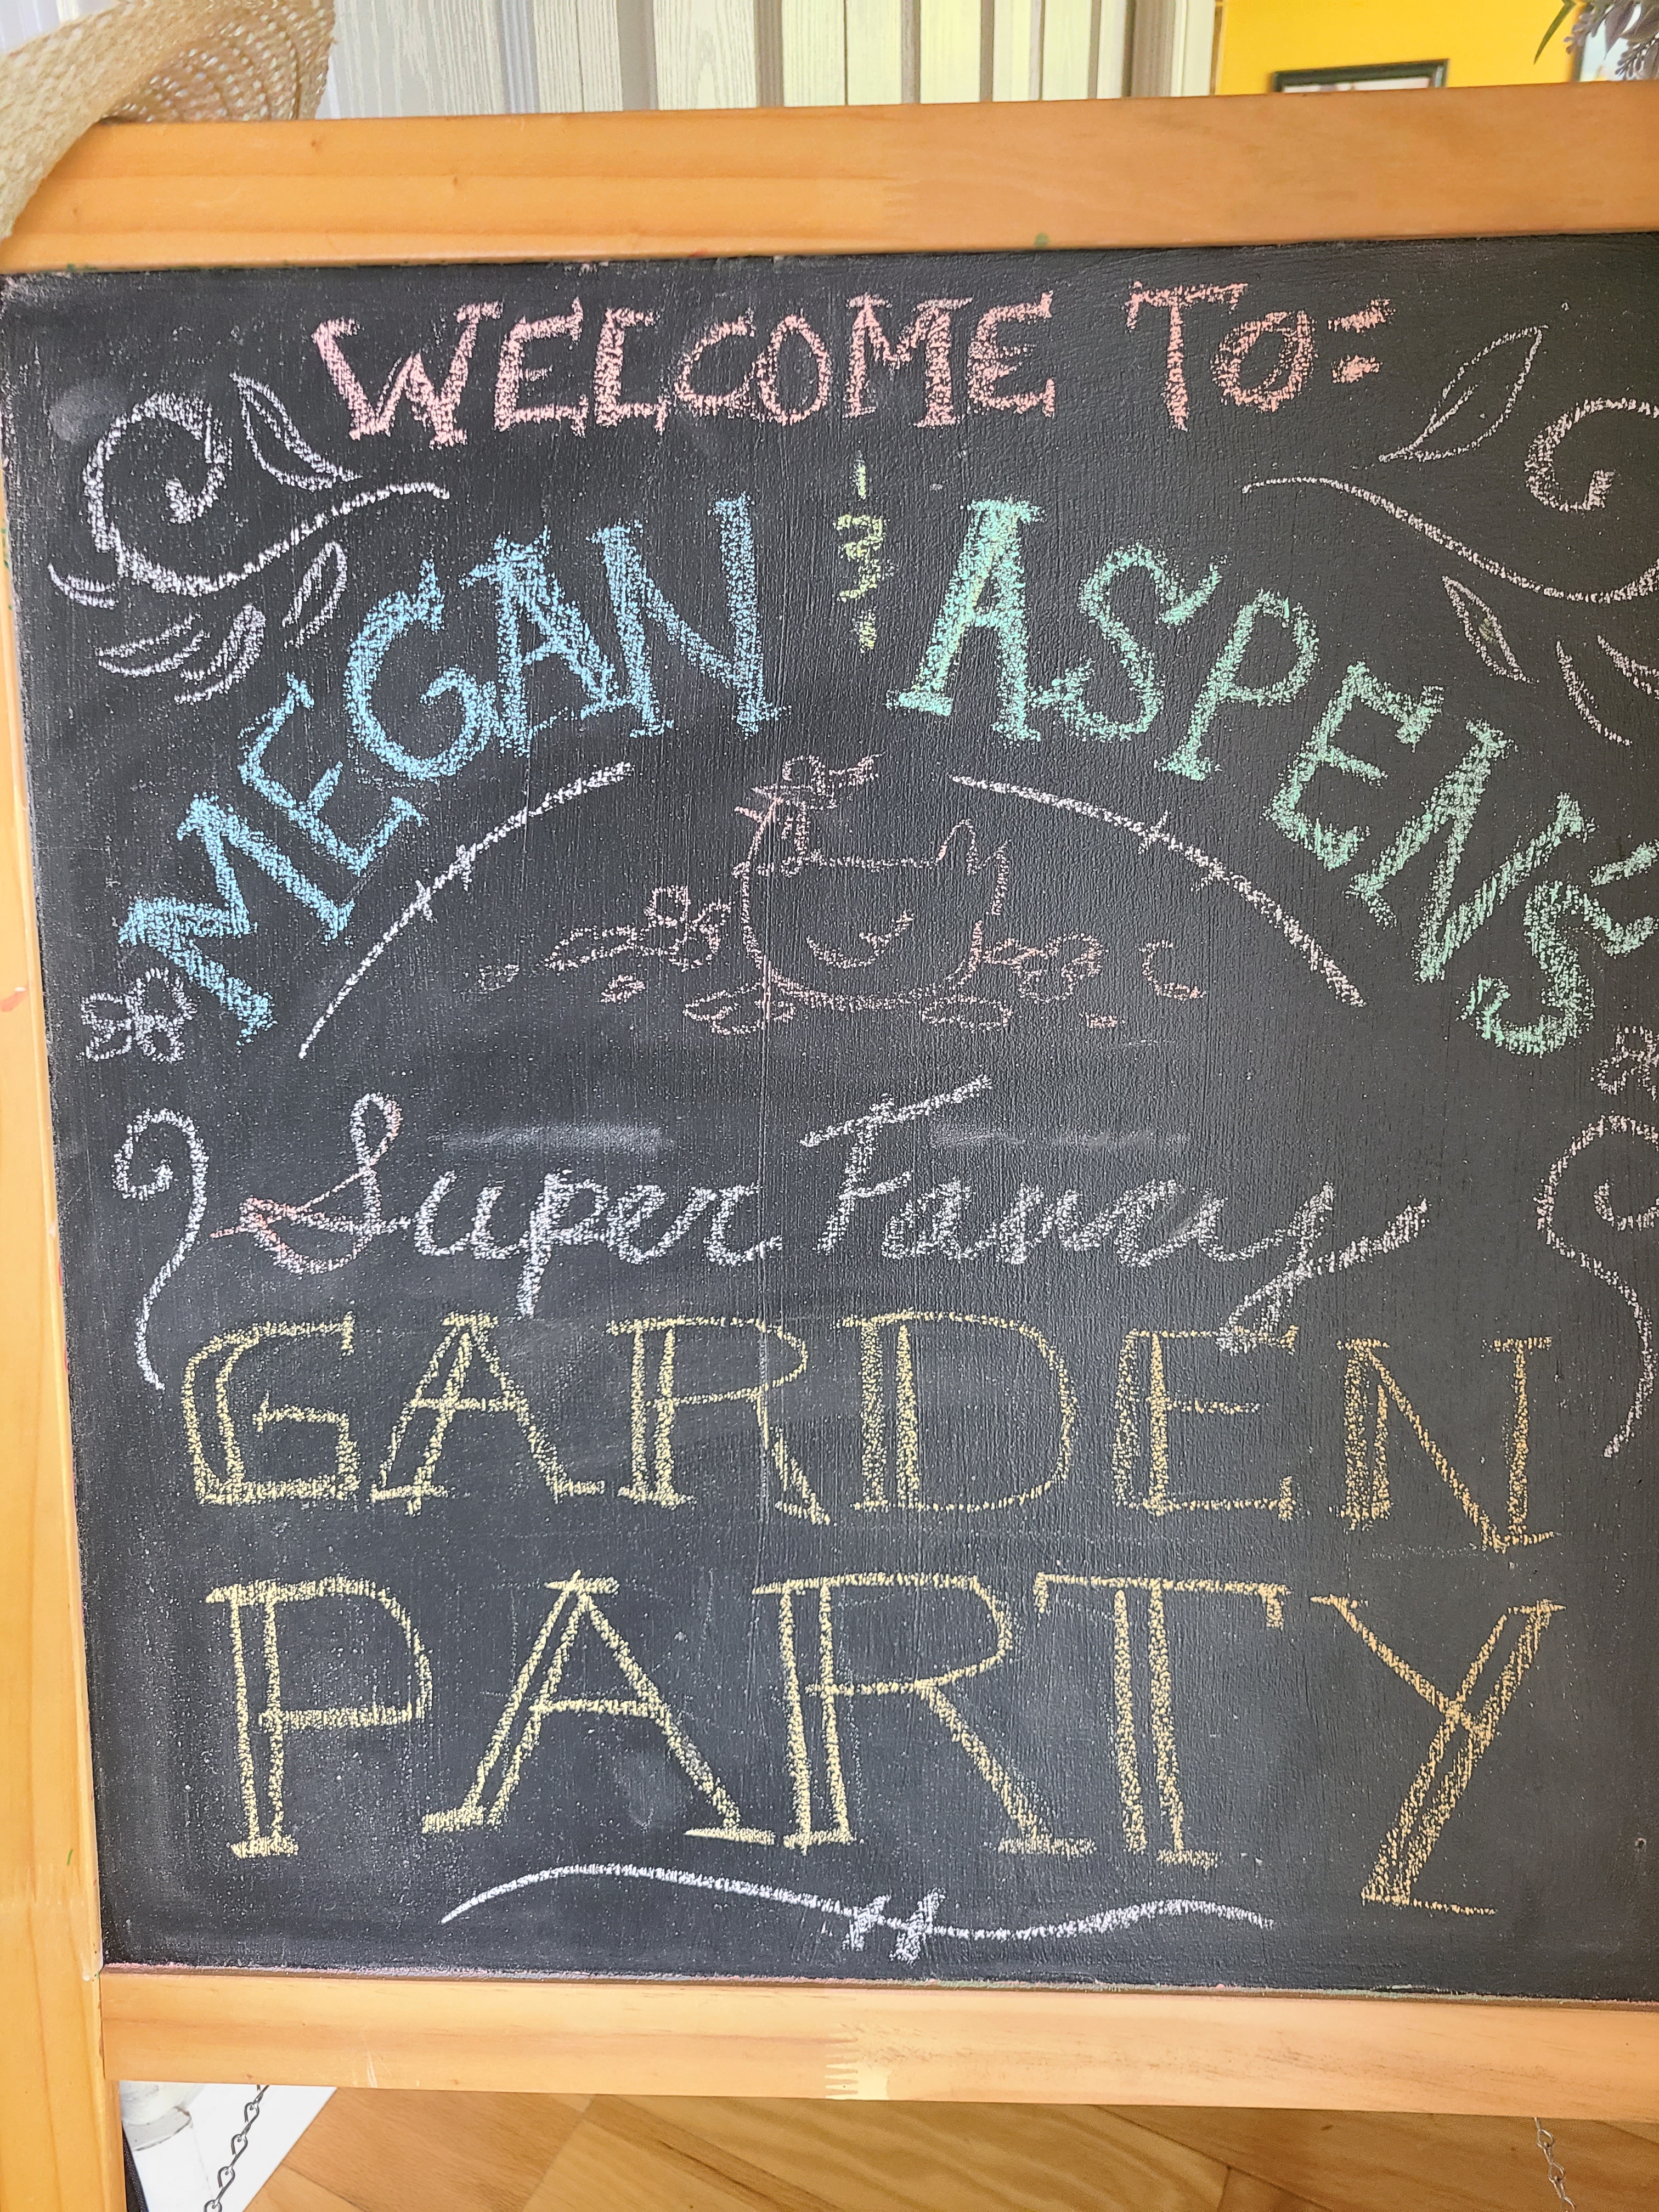 WELCOME TO:
MEGAN & ASPENS
Super Fancy
GARDEN
PARTY